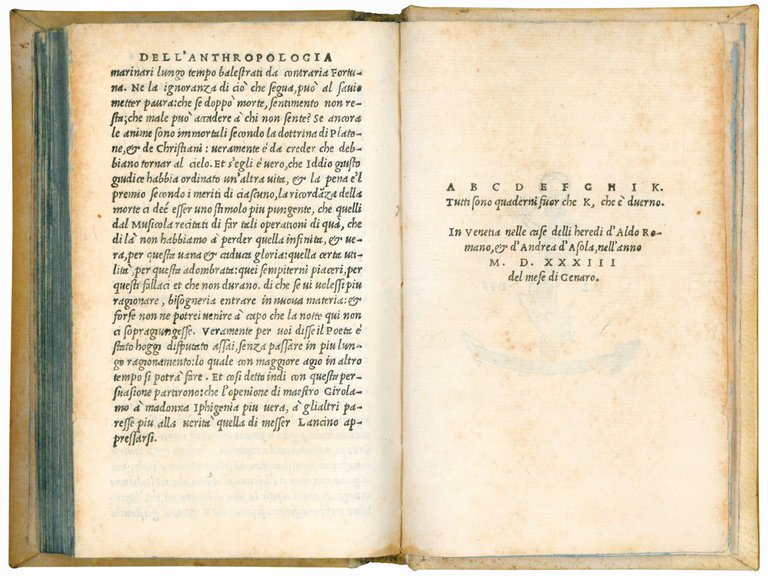 DELL'ANTHROPOLOGIA
marinari lungo tempo balestrati da contraria Fortu-
na. Ne la ignoranza di ciò che segua, può al sauio
metter paura: che se doppò morte, sentimento non re-
sta; che male può accadere à chi non sente? Se ancora
le anime sono immortali secondo la dottrina di Plato-
ne, & de Christiani: ueramente è da creder che deb-
biano tornar al cielo. Et s'egli è uero, che Iddio giusto
giudice habbia ordinato un'altra uita, & la pena e'l
premio secondo i meriti di ciascuno, la ricordãza della
morte ci dee esser uno stimolo piu pungente, che quelli
dal Musicola recitati di far tali operationi di quà, che
di là non habbiamo à perder quella infinita, & ue-
ra, per questa uana & caduca gloria: quella certa uti-
lità, per questa adombrata: quei sempiterni piaceri, per
questi fallaci et che non durano. di che se ui uolessi piu
ragionare, bisogneria entrare in nuoua materia: &
forse non ne potrei uenire à capo che la notte qui non
ci sopragiungesse. Veramente per uoi disse il Poeta è
stato hoggi disputato assai, senza passare in piu lun-
go ragionamento: lo quale con maggiore agio in altro
tempo si potrà fare. Et cosi detto indi con questa per-
suasione partirono: che l'openione di maestro Girola-
mo à madonna Iphigenia piu uera, à glialtri pa-
resse piu alla uerità quella di messer Lancino ap-
pressarsi.
A B C D E F G H I K.
Tutti sono quaderni fuor che K, che è duerno.
In Venetia nelle case delli heredi d'Aldo Ro-
mano, & d'Andrea d'Asola, nell'anno
M. D. XXXIII
del mese di Genaro.